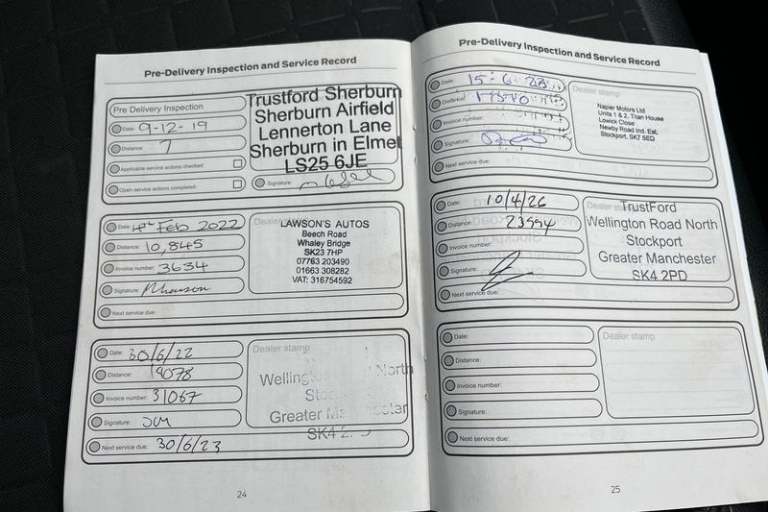 Pre-Delivery Inspection and Service Record
Pre Delivery Inspection
Date: 9-12-19
Distance: 7
Applicable service actions checked:
Open service actions completed:
Trustford Sherburn
Sherburn Airfield
Lennerton Lane
Sherburn in Elmet
LS25 6JE
Signature:
Date: 4th Feb 2022
Distance: 10,845
Invoice number: 3634
Signature:
Next service due:
LAWSON'S AUTOS
Beech Road
Whaley Bridge
SK23 7HP
07763 203490
01663 308282
VAT: 316754592
Date: 30/6/22
Distance:
Invoice number: 31067
Signature:
Next service due: 30/6/23
Dealer stamp
North
Greater
SK4
24
Pre-Delivery Inspection and Service Record
Date: 15-6-23
Distance:
Invoice number:
Signature:
Next service due:
Dealer stamp
Napier Motors Ltd
Units 1 & 2, Titan House
Lowick Close
Newby Road Ind. Est.
Stockport, SK7 5ED
Date: 10/4/26
Distance: 23554
Invoice number:
Signature:
Next service due:
TrustFord
Wellington Road North
Stockport
Greater Manchester
SK4 2PD
Date:
Distance:
Invoice number:
Signature:
Next service due:
Dealer stamp
25